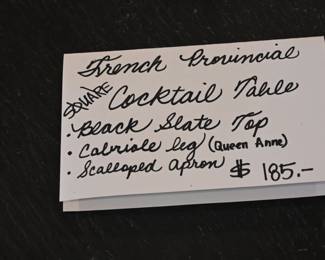 French Provincial
SQUARE Cocktail Table
• Black Slate Top
• Cabriole leg (Queen Anne)
• Scalloped apron $ 185.-